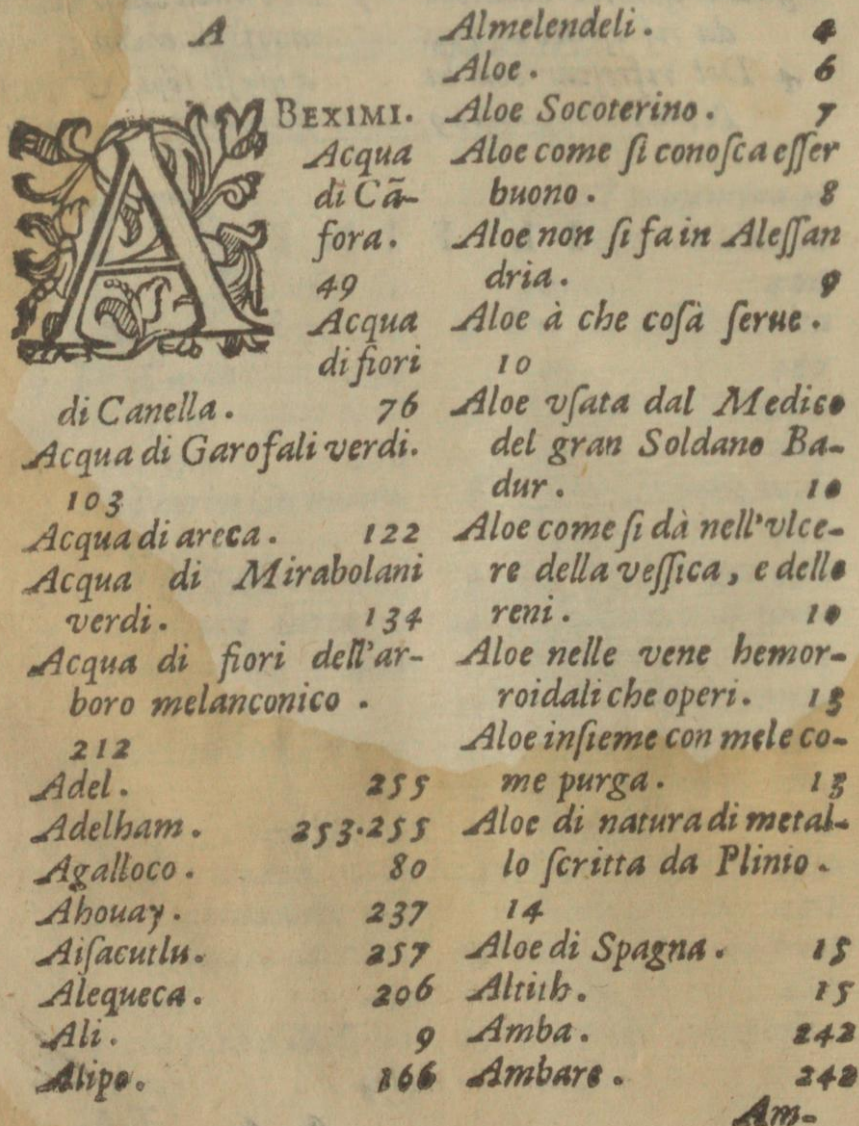 A
ABEXIMI.
Acqua
di Cã-
fora.
49
Acqua
di fiori
di Canella. 76
Acqua di Garofali verdi.
103
Acqua di areca. 122
Acqua di Mirabolani
verdi. 134
Acqua di fiori dell'ar-
boro melanconico .
212
Adel. 255
Adelham. 253.255
Agalloco. 80
Ahouay. 237
Aiſacutlu. 257
Alequeca. 206
Ali. 9
Alipo. 166
Almelendeli. 4
Aloe. 6
Aloe Socoterino. 7
Aloe come ſi conoſca eſſer
buono. 8
Aloe non ſi fa in Aleſſan
dria. 9
Aloe à che coſà ſerue.
10
Aloe vſata dal Medico
del gran Soldano Ba-
dur. 10
Aloe come ſi dà nell'vlce-
re della veſſica, e delle
reni. 10
Aloe nelle vene hemor-
roidali che operi. 13
Aloe inſieme con mele co-
me purga. 13
Aloe di natura di metal-
lo ſcritta da Plinio.
14
Aloe di Spagna. 15
Altith. 15
Amba. 242
Ambare. 242
Am-